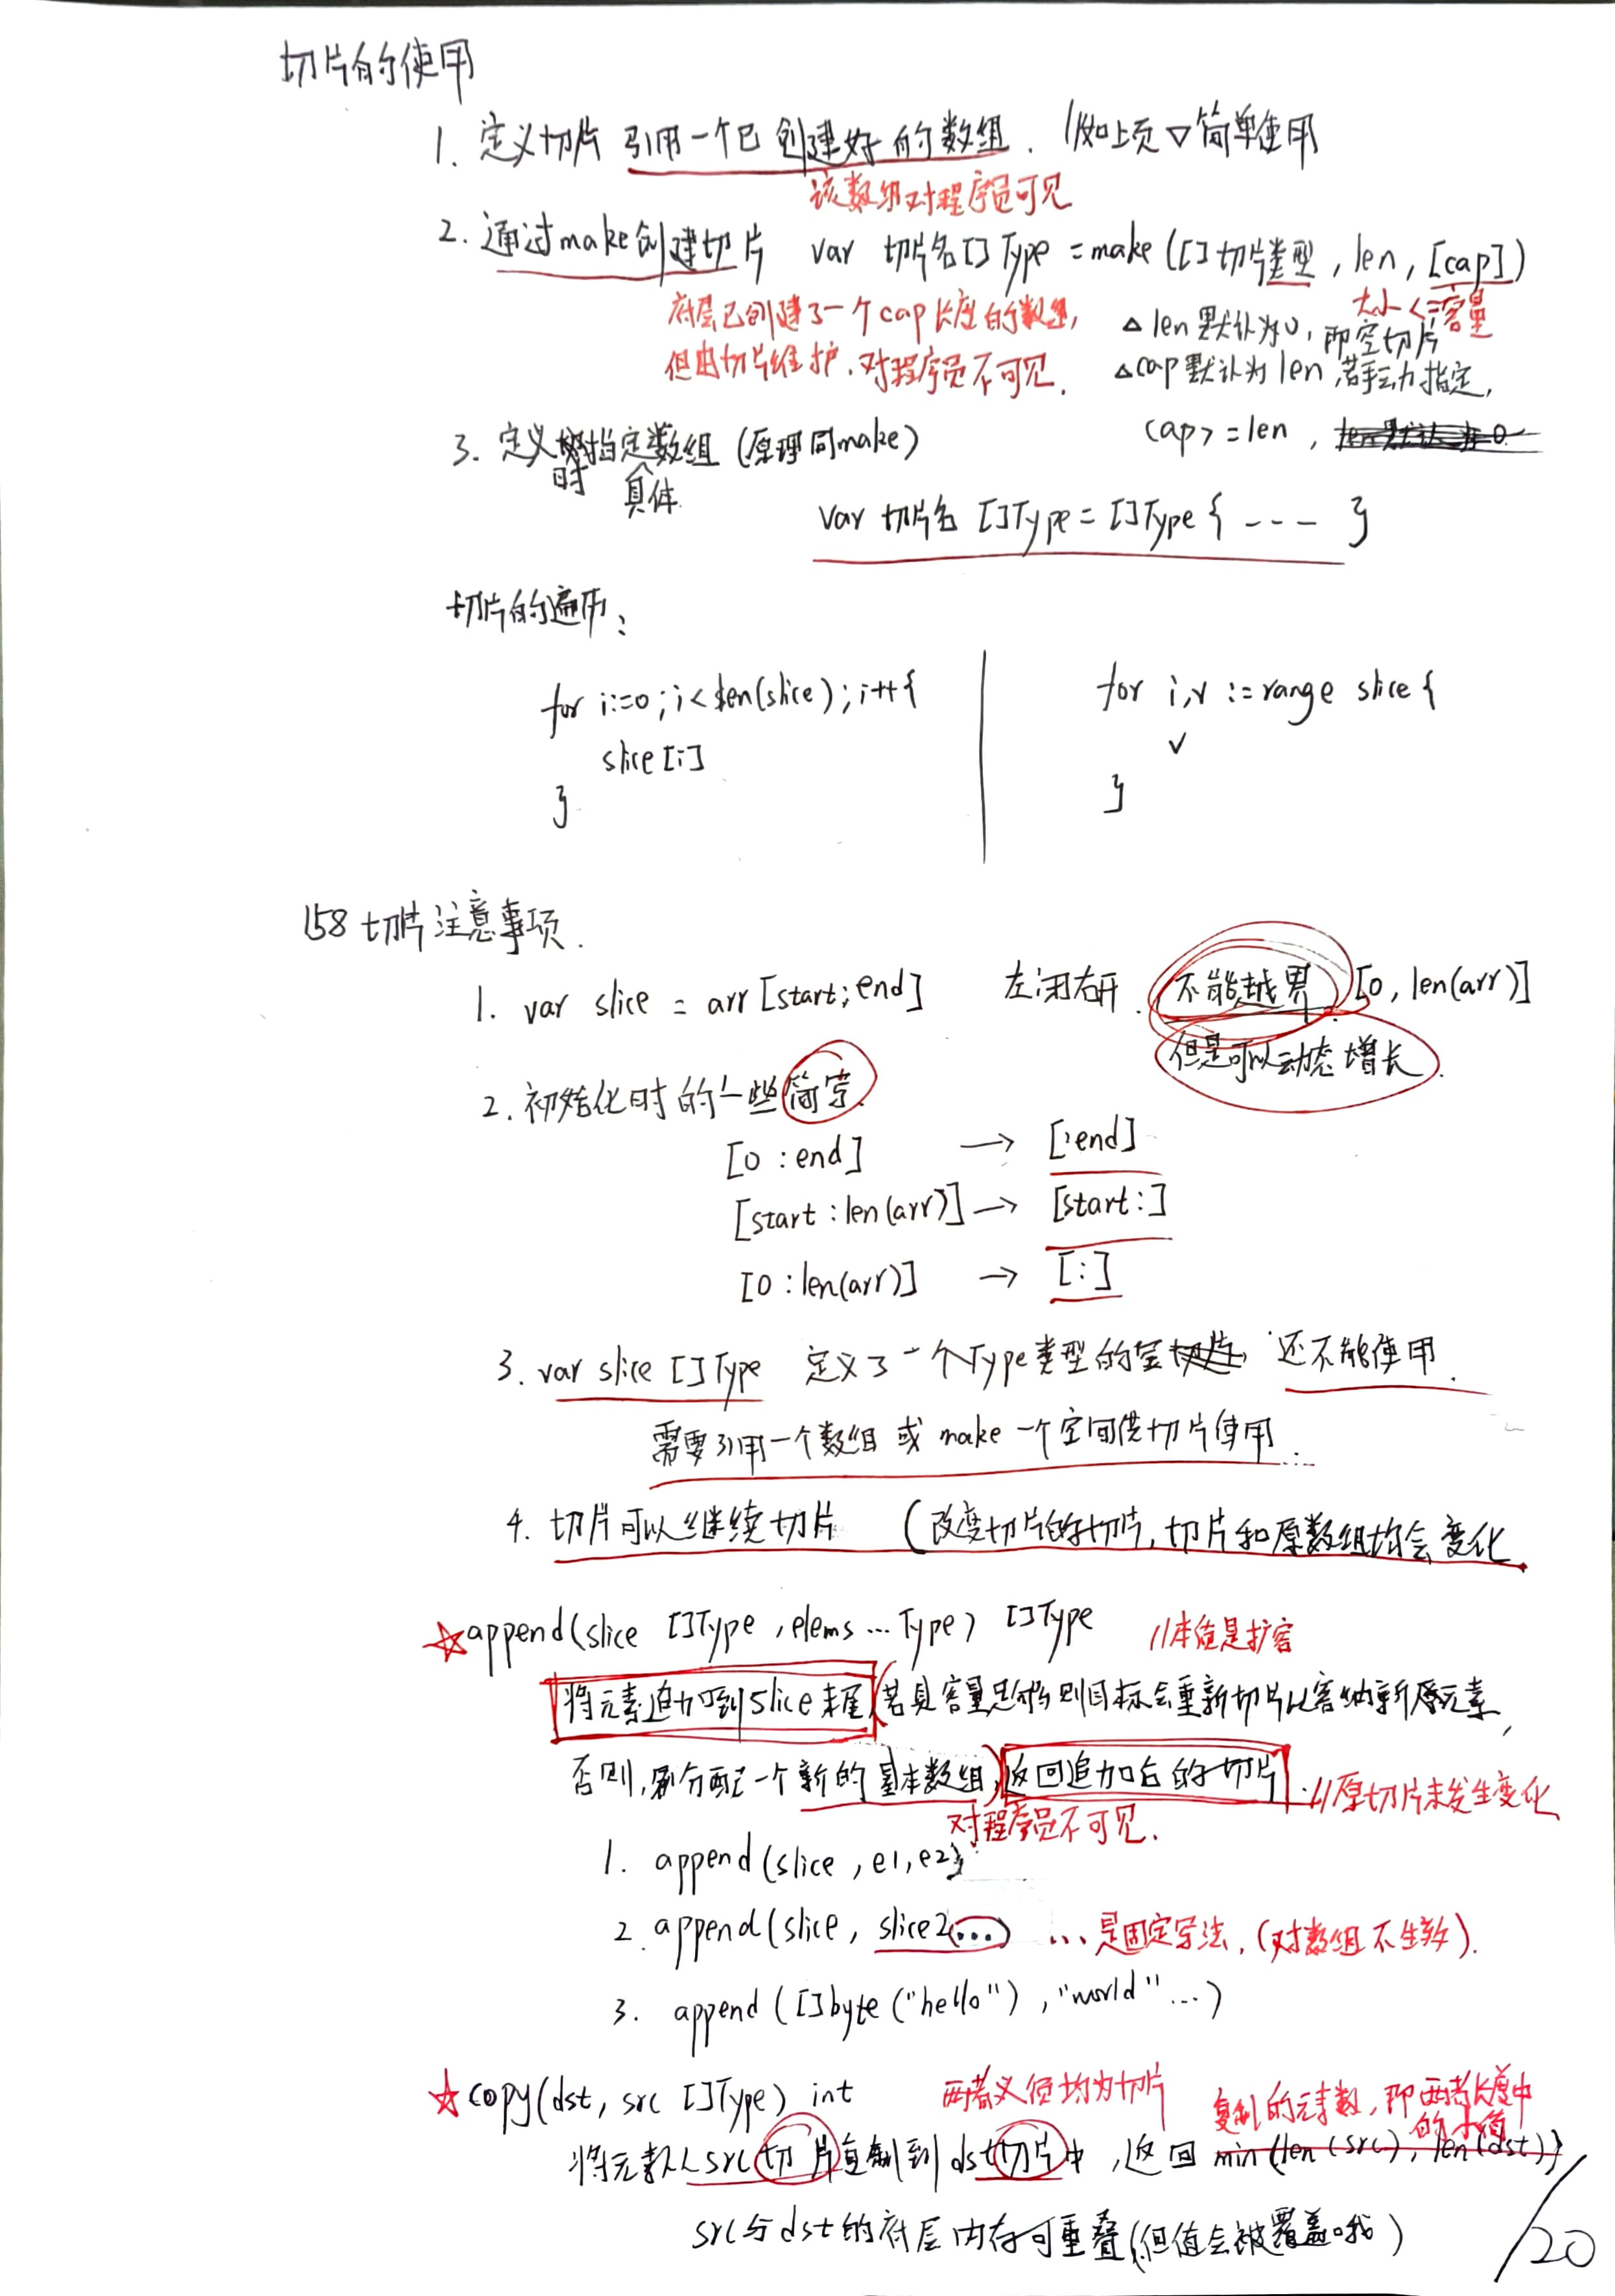 切片的使用
1. 定义切片 引用一个已创建好的数组. 例如上页▽简单使用
该数组对程序员可见
2. 通过make创建切片 var 切片名[]Type = make([]切片类型, len, [cap])
大小 <= 容量
底层已创建了一个cap长度的数组, △ len默认为0, 即空切片
但由切片维护. 对程序员不可见. △cap默认为len, 若手动指定,
cap>=len, len默认为0
3. 定义时指定具体数组 (原理同make)
var 切片名 []Type = []Type { --- }
切片的遍历:
for i:=0; i<len(slice); i++{ for i,v := range slice {
slice[i] v
} }
158 切片注意事项.
1. var slice = arr[start:end] 左闭右开. 不能越界. [0, len(arr)]
但是可以动态增长.
2. 初始化时的一些简写.
[0 : end] → [:end]
[start : len(arr)] → [start:]
[0 : len(arr)] → [:]
3. var slice []Type 定义了一个Type类型的空切片, 还不能使用.
需要引用一个数组 或 make 一个空间供切片使用.
4. 切片可以继续切片 (改变切片的切片, 切片和原数组均会变化.
☆append(slice []Type, elems ... Type) []Type //本质是扩容
将元素追加到slice末尾(若其容量足够则目标会重新切片以容纳新元素,
否则, 分配一个新的基本数组)返回追加后的切片. //原切片未发生变化
对程序员不可见.
1. append(slice, e1, e2)
2. append(slice, slice2...) ...是固定写法, (对数组不生效).
3. append([]byte("hello"), "world"...)
☆copy(dst, src []Type) int 两者必须均为切片 复制的元素数, 即两者长度中的小值
将元素从src切片复制到dst切片中, 返回 min(len(src), len(dst))
src与dst的底层内存可重叠(但值会被覆盖哦)
/20